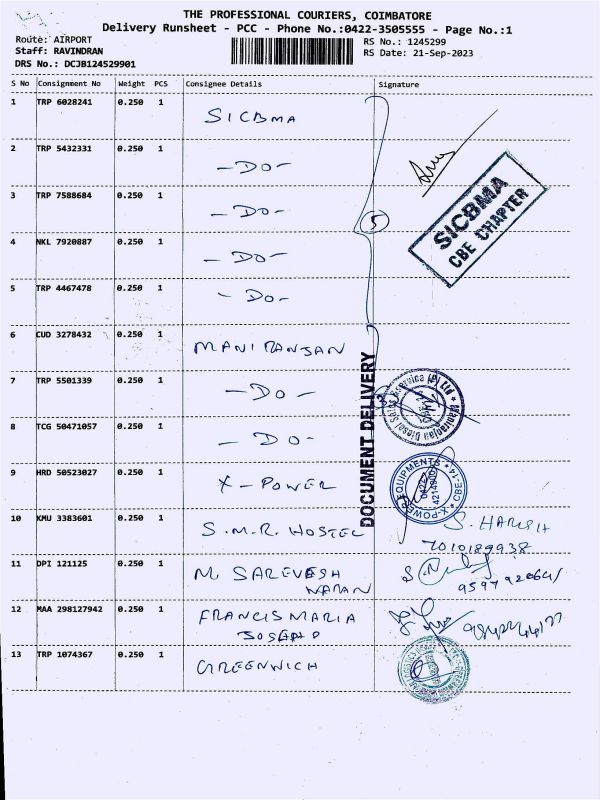 THE PROFESSIONAL COURIERS, COIMBATORE
Delivery Runsheet - PCC - Phone No.:0422-3505555 - Page No.:1
Route: AIRPORT
Staff: RAVINDRAN
DRS No.: DCJB124529901
RS No.: 1245299
RS Date: 21-Sep-2023
S No Consignment No Weight PCS Consignee Details Signature
1 TRP 6028241 0.250 1 SICBMA
2 TRP 5432331 0.250 1 -DO-
3 TRP 7588684 0.250 1 -DO-
4 NKL 7920887 0.250 1 -DO-
5 TRP 4467478 0.250 1 -DO-
5
SICBMA
CBE CHAPTER
6 CUD 3278432 0.250 1 MANIRANJAN
7 TRP 5501339 0.250 1 -DO-
8 TCG 50471057 0.250 1 -DO-
3
Maniranjan Diesel Sales & Service (P) Ltd
DOCUMENT DELIVERY
9 HRD 50523027 0.250 1 X-POWER
X-POWER EQUIPMENTS * CBE-14
10 KMU 3383601 0.250 1 S.M.R. HOSTEL S. HARISH
7010189938
11 DPI 121125 0.250 1 M. SAREVESH
NARAN
12 MAA 298127942 0.250 1 FRANCIS MARIA
JOSEPH
13 TRP 1074367 0.250 1 GREENWICH